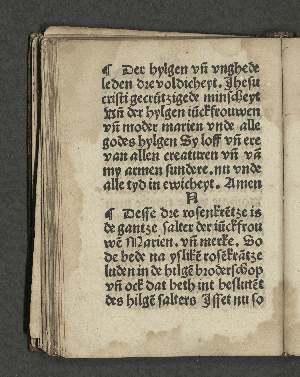 ¶ Der hylgen vn̄ vnghede
leden dre voldicheyt. Jhesu
cristi gecrützigede minscheyt
Vn̄ der hylgen iückfrouwen
vn̄ moder marien vnde alle
godes hylgen Sy loff vn̄ ere
van allen creaturen vn̄ vā
my armen sundere. nu vnde
alle tyd in ewicheyt. Amen
¶ Desse dre rosenkrētze is
de gantze salter der iückfrou
wē Marien. vn̄ merke. So
de bede na yslikē rosēkrātze
luden in de hilgē broderschop
vn̄ ock dat beth int beslutēt
des hilgē salters Jsset nu so